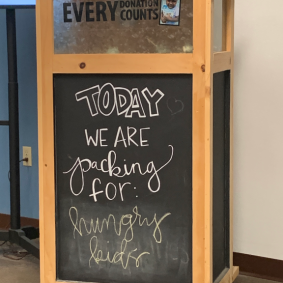 EVERY DONATION COUNTS
TODAY
WE ARE
packing
for:
hungry
kids